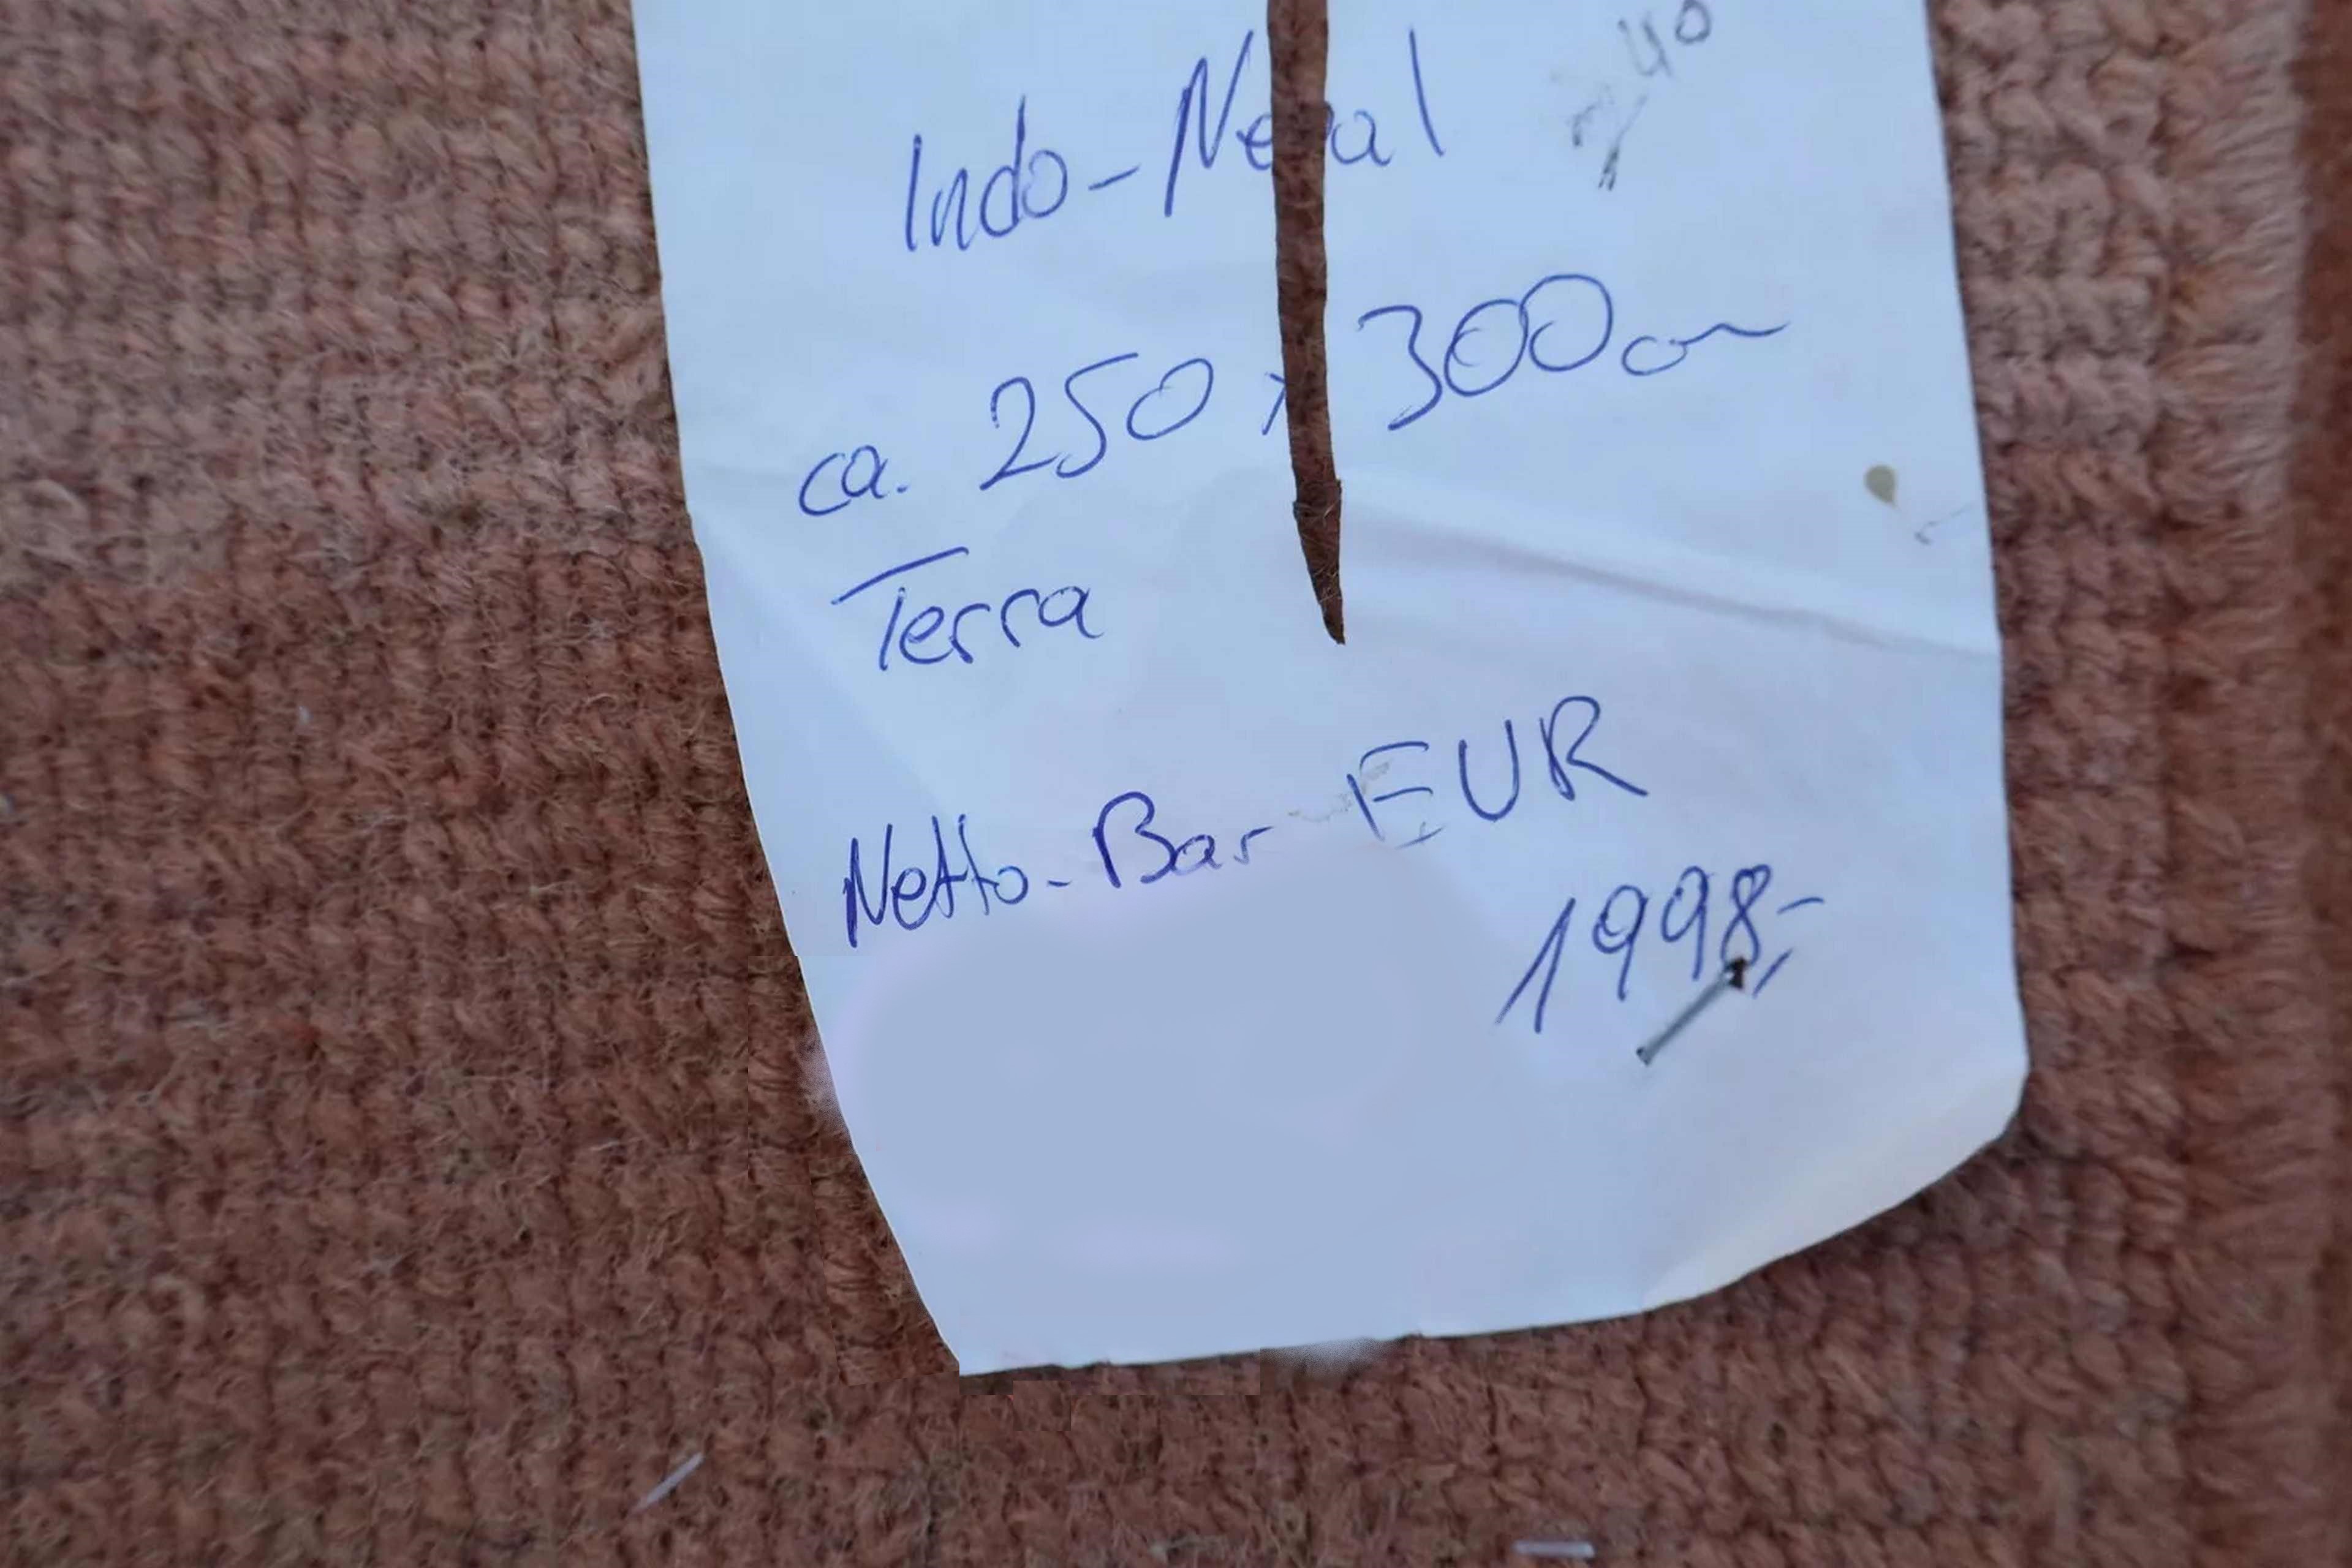 40
Indo-Nepal
ca. 250 x 300cm
Terra
Netto-Bar-EUR
1998,-